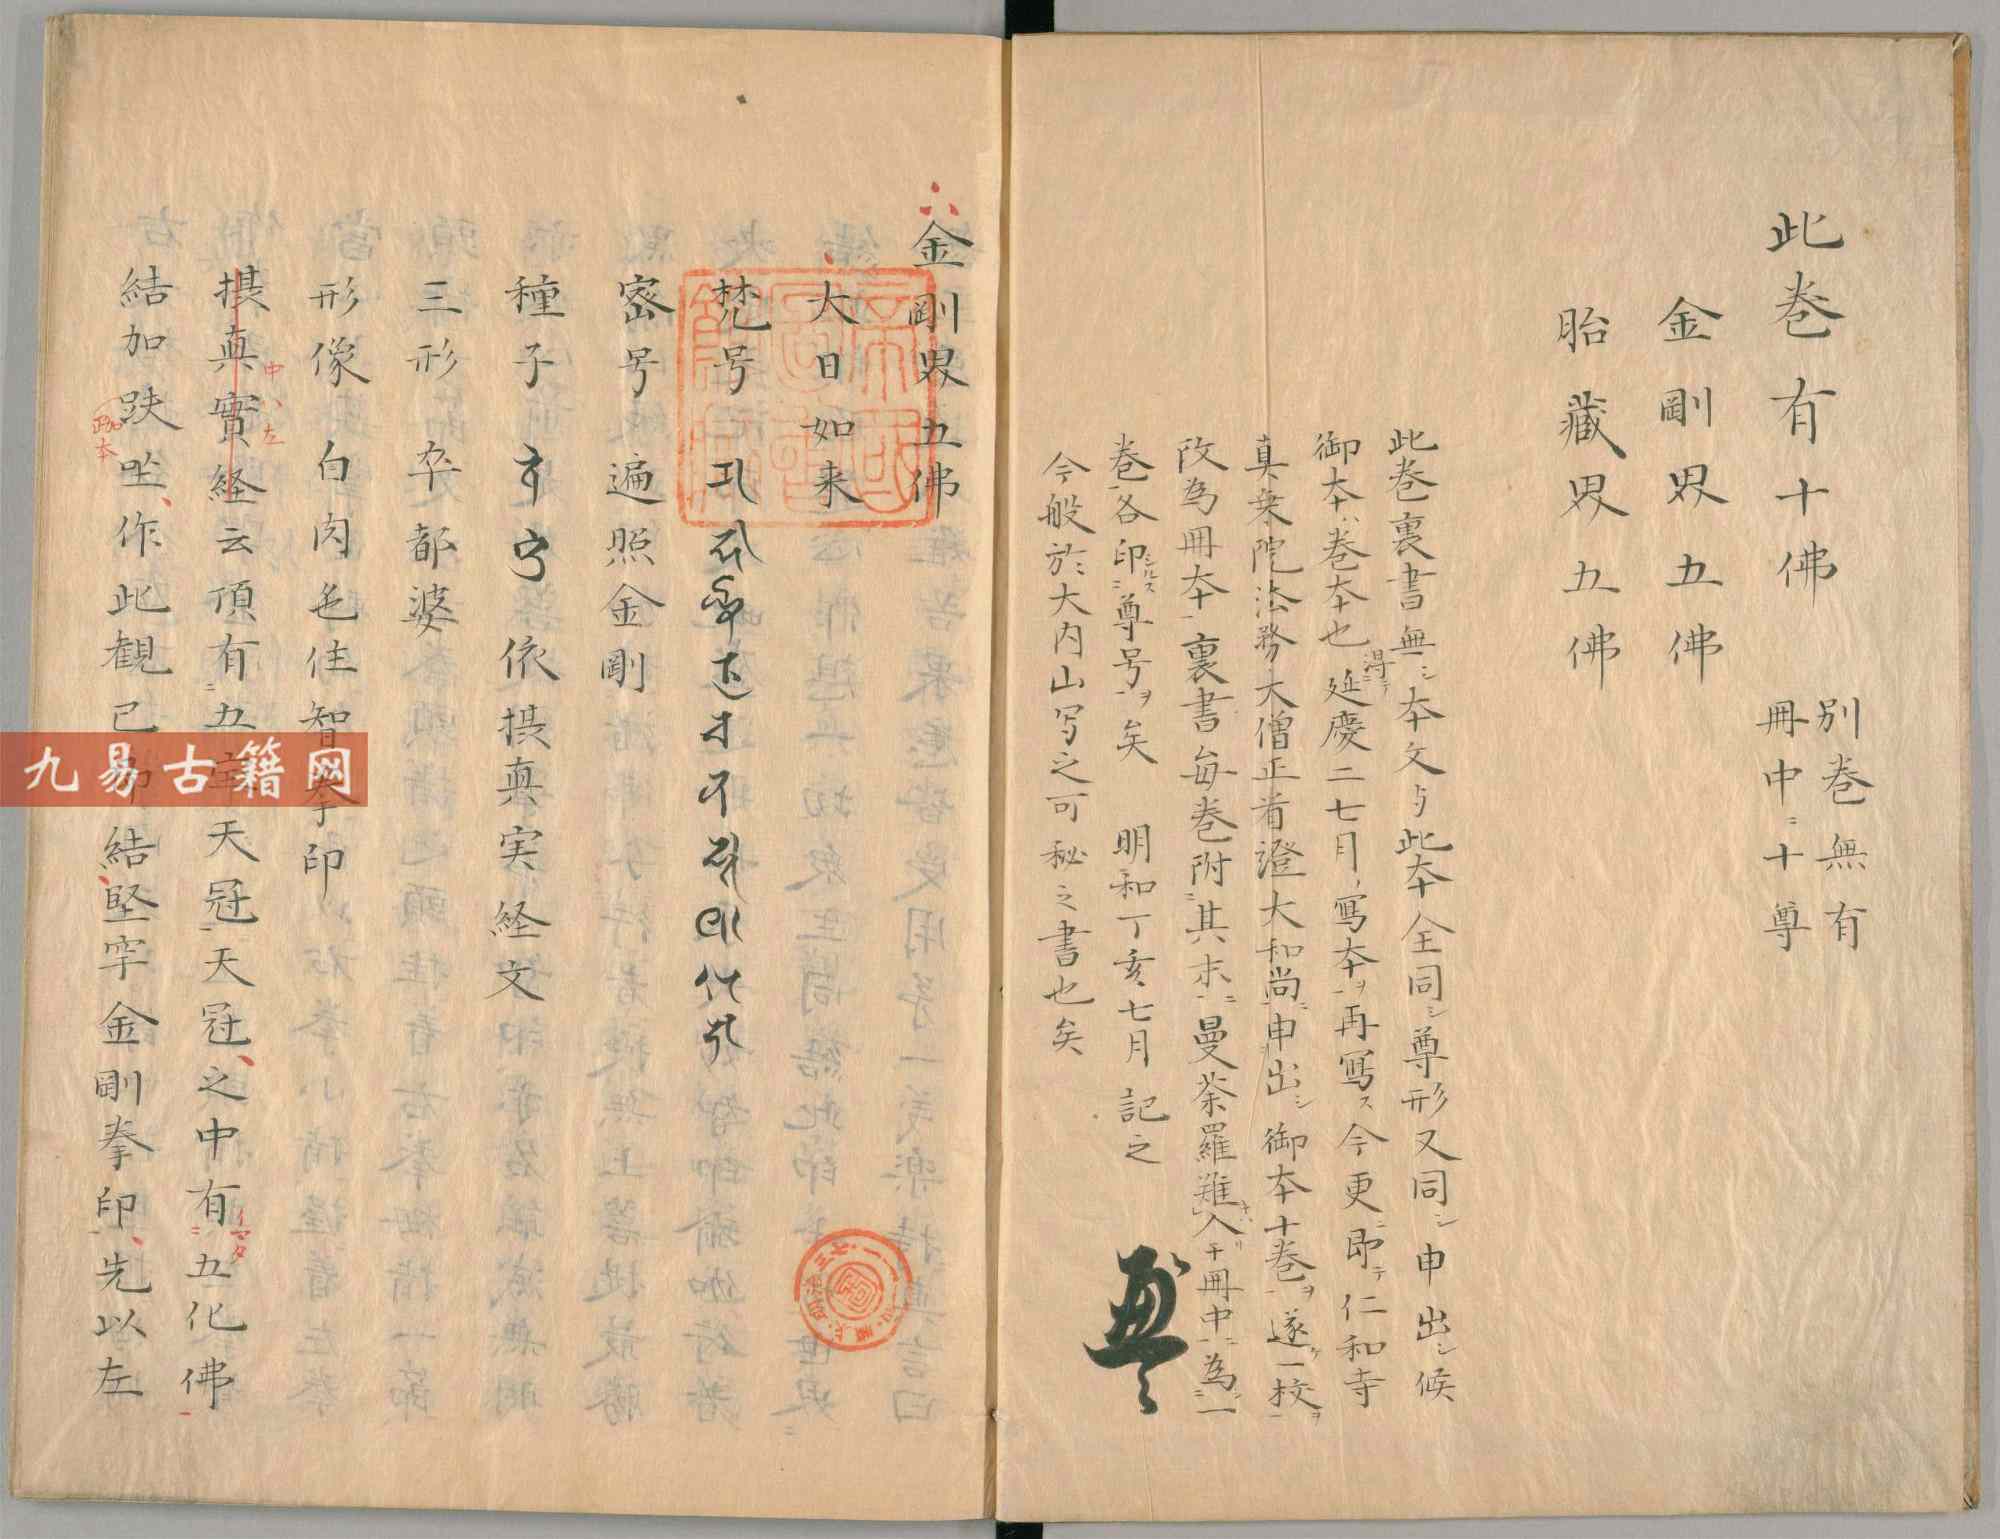 此巻有十佛
別巻無有
冊中ニ十尊
金剛界五佛
胎藏界五佛
此巻裏書無シ本文与此本全同シ尊形又同シ申出シ候
御本ハ巻本也延慶二七月写本ヲ再寫ス今更即テ仁和寺
真乗院法務大僧正有證大和尚ニ申出シ御本十巻ヲ遂一校ヲ
改為冊本裏書毎巻附其末ニ曼荼羅難入冊中ニ為一
巻各印尊号ヲ矣 明和丁亥七月記之
今般於大内山写之可秘之書也矣
金剛界五佛
大日如来
梵号
密号 遍照金剛
種子 依摂真実経文
三形 卒都婆
形像 白肉色住智拳印
摂真實経云頂有五 天冠天冠之中有五化佛
結加趺坐作此観已 結堅牢金剛拳印先以左
九易古籍网